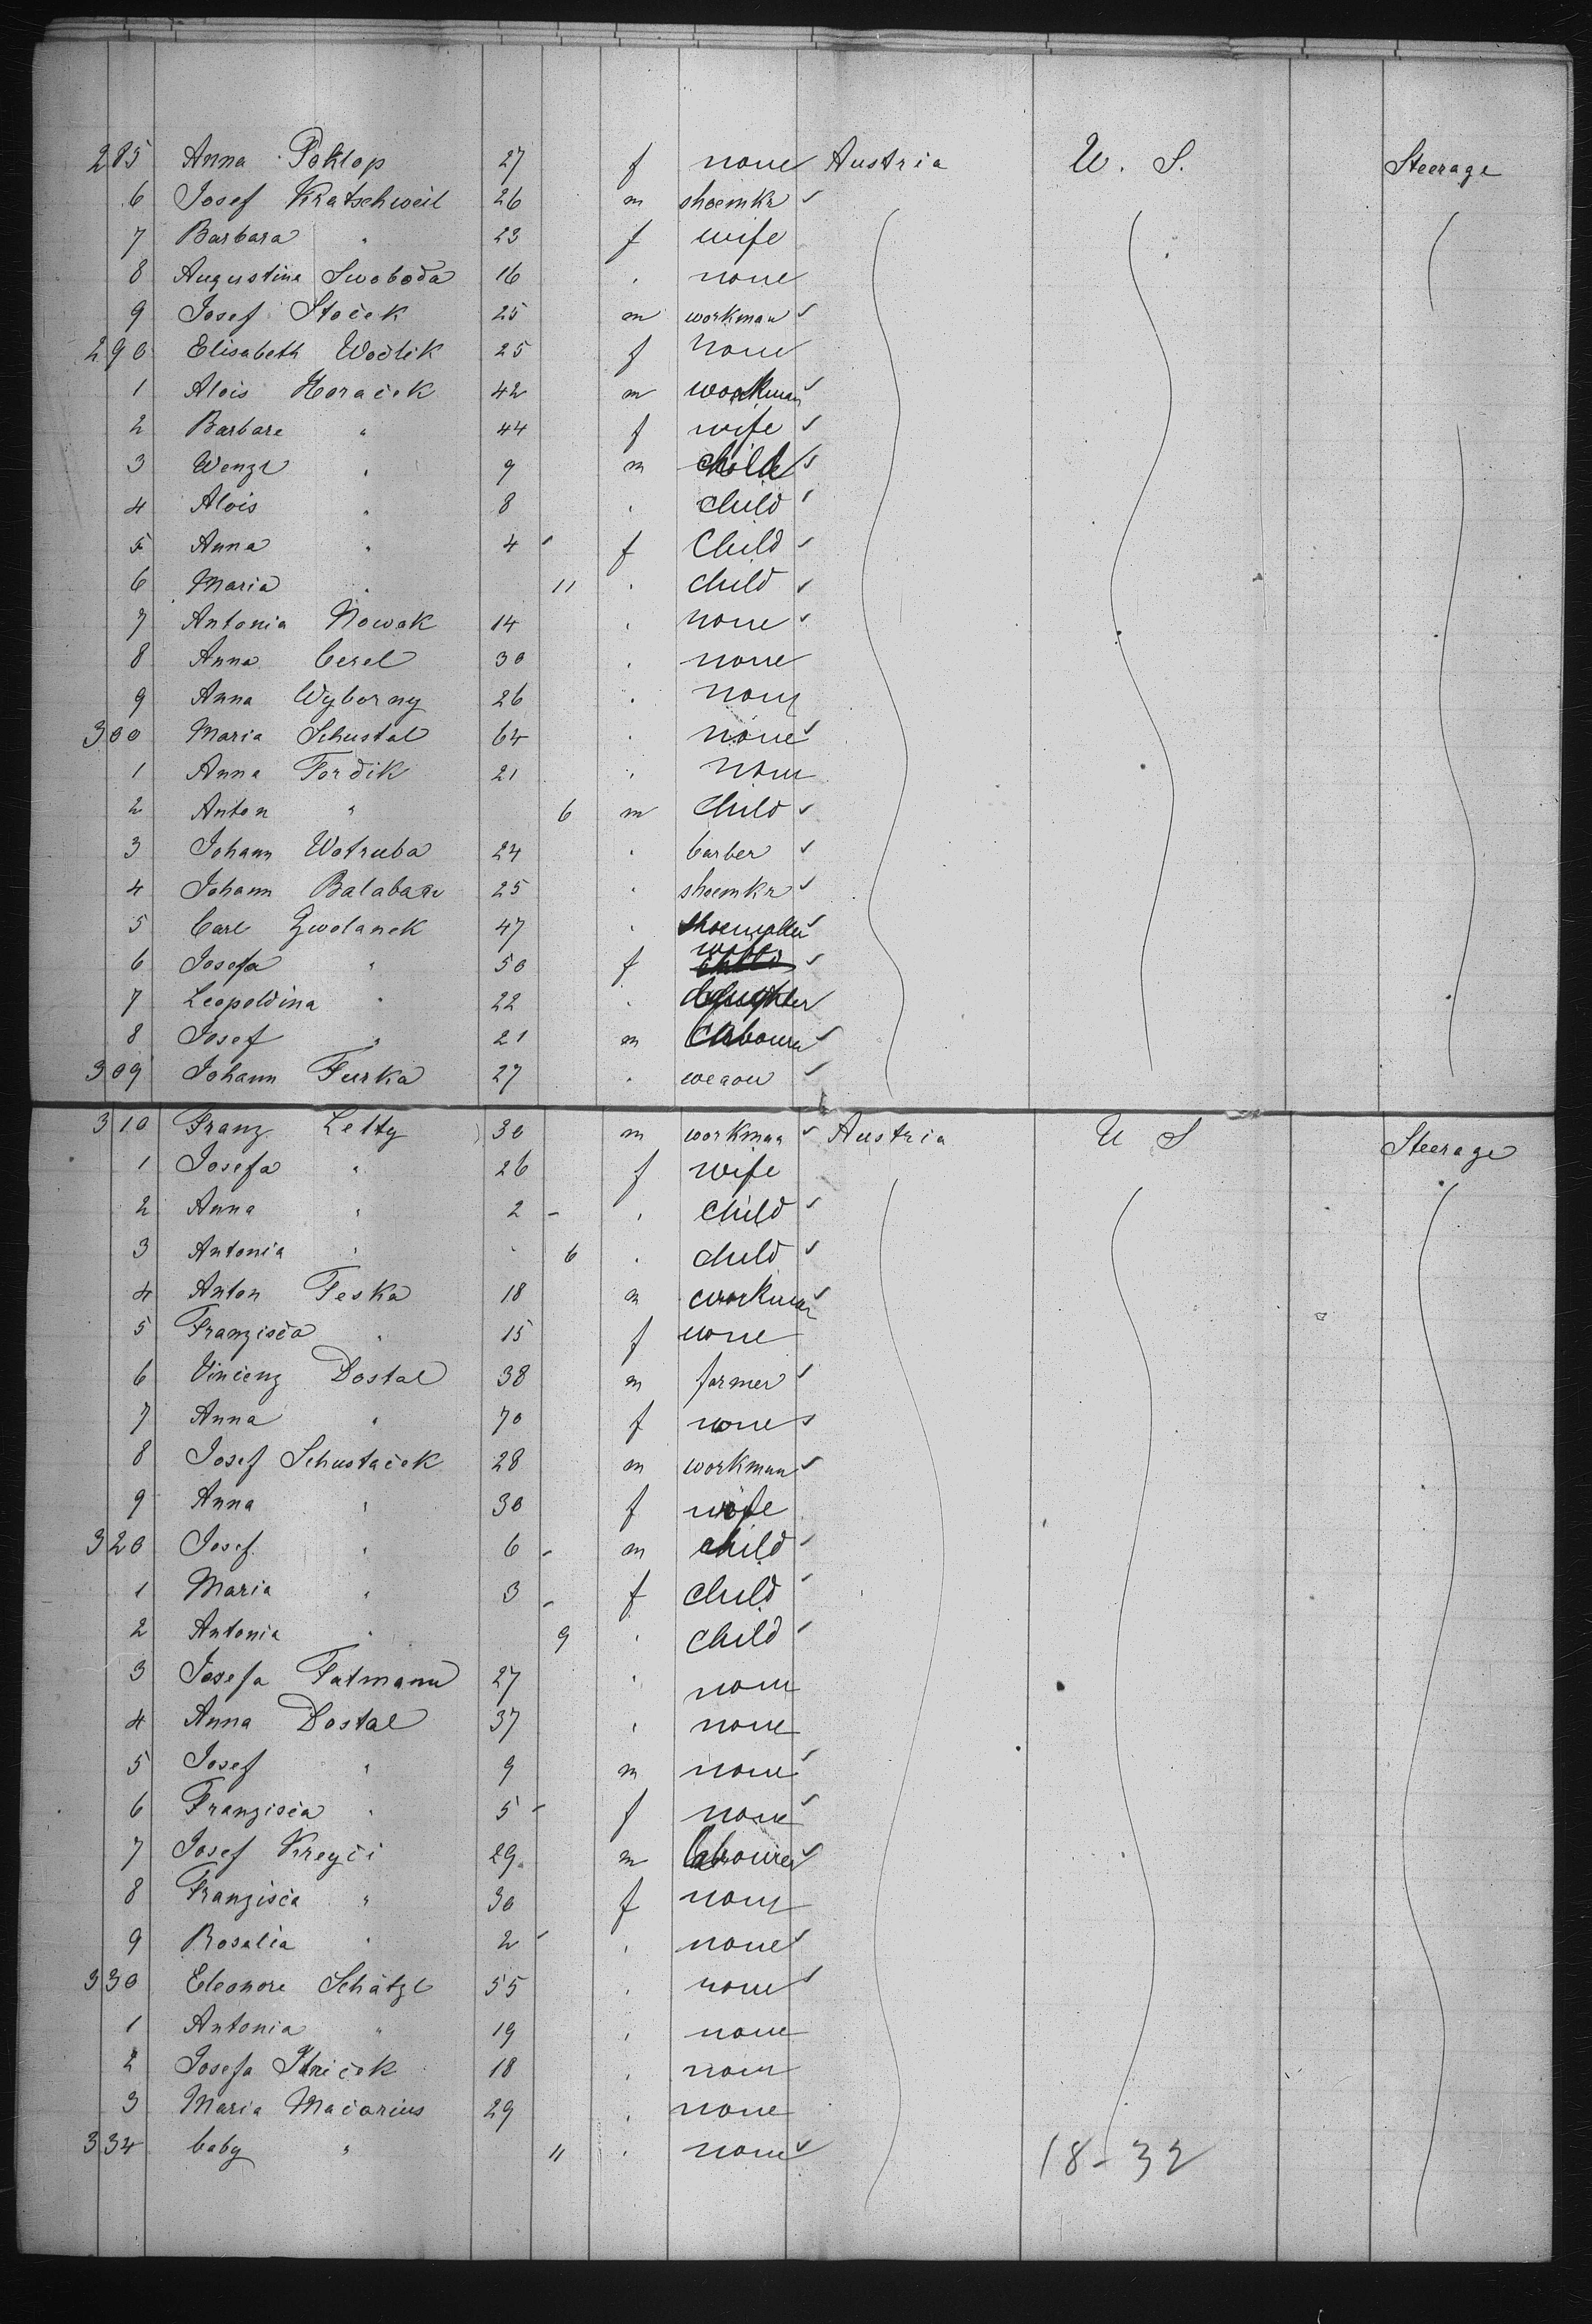 285 Anna Poklop 27 f none Austria U. S. Steerage
6 Josef Kratschweil 26 m shoemkr ✓
7 Barbara " 23 f wife
8 Augustina Swoboda 16 " none
9 Josef Stoček 25 m workman ✓
290 Elisabeth Wodlik 25 f none
1 Alois Horaček 42 m workman ✓
2 Barbara " 44 f wife ✓
3 Wenzl " 9 m child ✓
4 Alois " 8 " child ✓
5 Anna " 4 - f Child ✓
6 Maria " 11 " child ✓
7 Antonia Nowak 14 " none ✓
8 Anna Cerel 30 " none
9 Anna Wyborny 26 " none
300 Maria Schustal 64 " none ✓
1 Anna Fordik 21 " none
2 Anton " 6 m child ✓
3 Johann Wotruba 24 " barber ✓
4 Johann Balaban 25 " shoemkr ✓
5 Carl Zwolanek 47 " ✓
6 Josefa " 50 f wife ✓
7 Leopoldina " 22 " daughter
8 Josef " 21 m Labourer ✓
309 Johann Furka 27 " ✓
310 Franz Letty 30 m workman ✓ Austria U S Steerage
1 Josefa " 26 f wife
2 Anna " 2 - " child ✓
3 Antonia " 6 " child ✓
4 Anton Feska 18 m workman ✓
5 Franzisca " 15 f none
6 Vincenz Dostal 38 m farmer ✓
7 Anna " 70 f none ✓
8 Josef Schustaček 28 m workman ✓
9 Anna " 30 f wife
320 Josef " 6 - m child ✓
1 Maria " 3 - f child ✓
2 Antonia " 9 " child ✓
3 Josefa Fatmann 27 " none
4 Anna Dostal 37 " none
5 Josef " 9 m none ✓
6 Franzisca " 5 - f none ✓
7 Josef Kreyči 29 m Labourer ✓
8 Franzisca " 30 f none
9 Rosalia " 2 - " none ✓
330 Eleonore Schätzl 55 " none ✓
1 Antonia " 19 " none
2 Josefa 18 " none
3 Maria Macarius 29 " none
334 baby " 11 " none ✓
18-32